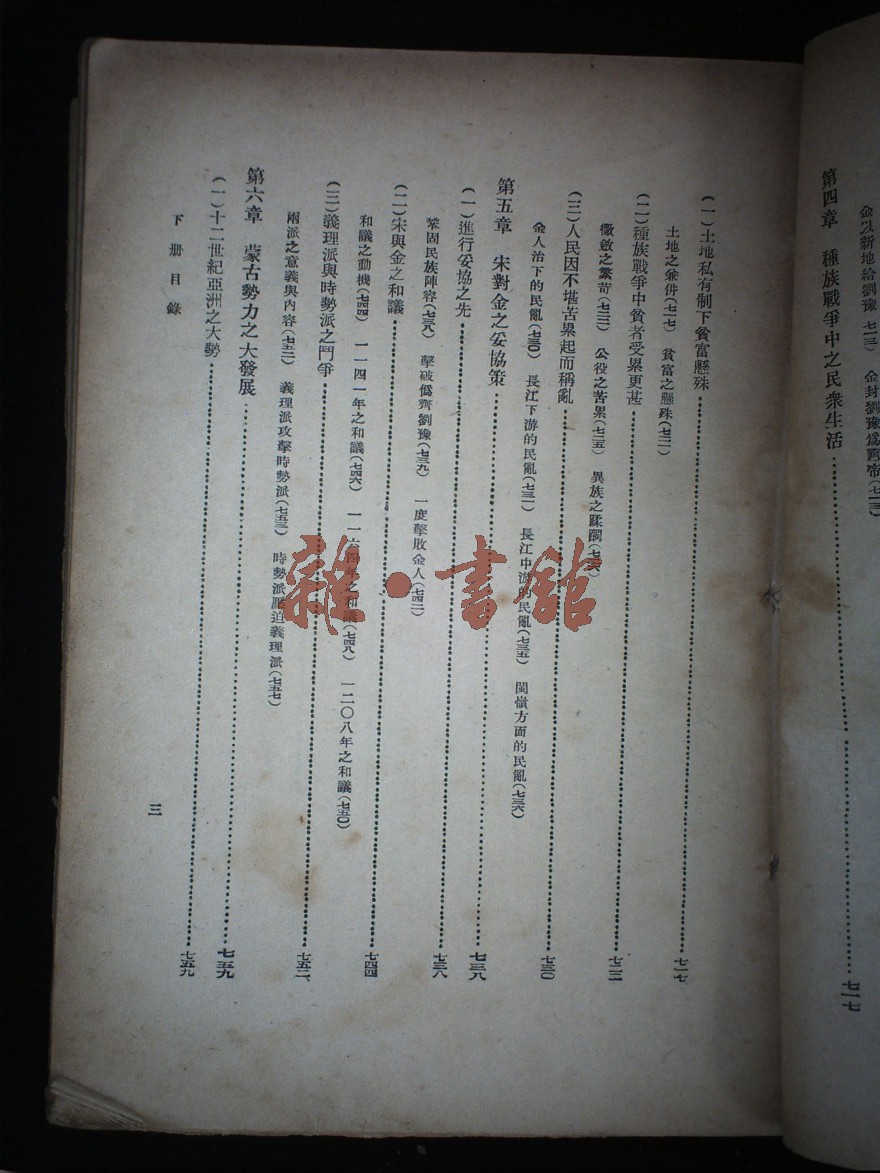 金以新地給劉豫(七一三) 金封劉豫爲齊帝(七一三)
第四章 種族戰爭中之民衆生活……七一七
(一)土地私有制下貧富懸殊……七一七
土地之兼併(七一七) 貧富之懸殊(七二一)
(二)種族戰爭中貧者受累更甚……七二三
徵斂之繁苛(七二三) 公役之苦累(七二五) 異族之蹂躪(七二六)
(三)人民因不堪苦累起而稱亂……七三〇
金人治下的民亂(七三〇) 長江下游的民亂(七三一) 長江中游的民亂(七三五) 閩嶺方面的民亂(七三六)
第五章 宋對金之妥協策……七三八
(一)進行妥協之先……七三八
鞏固民族陣容(七三八) 擊破僞齊劉豫(七三九) 一度擊敗金人(七四二)
(二)宋與金之和議……七四四
和議之動機(七四四) 一一四一年之和議(七四六) 一一六四年之和議(七四八) 一二〇八年之和議(七五〇)
(三)義理派與時勢派之鬥爭……七五二
兩派之意義與內容(七五二) 義理派攻擊時勢派(七五三) 時勢派壓迫義理派(七五七)
第六章 蒙古勢力之大發展……七五九
(一)十二世紀亞洲之大勢……七五九
下册目錄
三
雜·書館